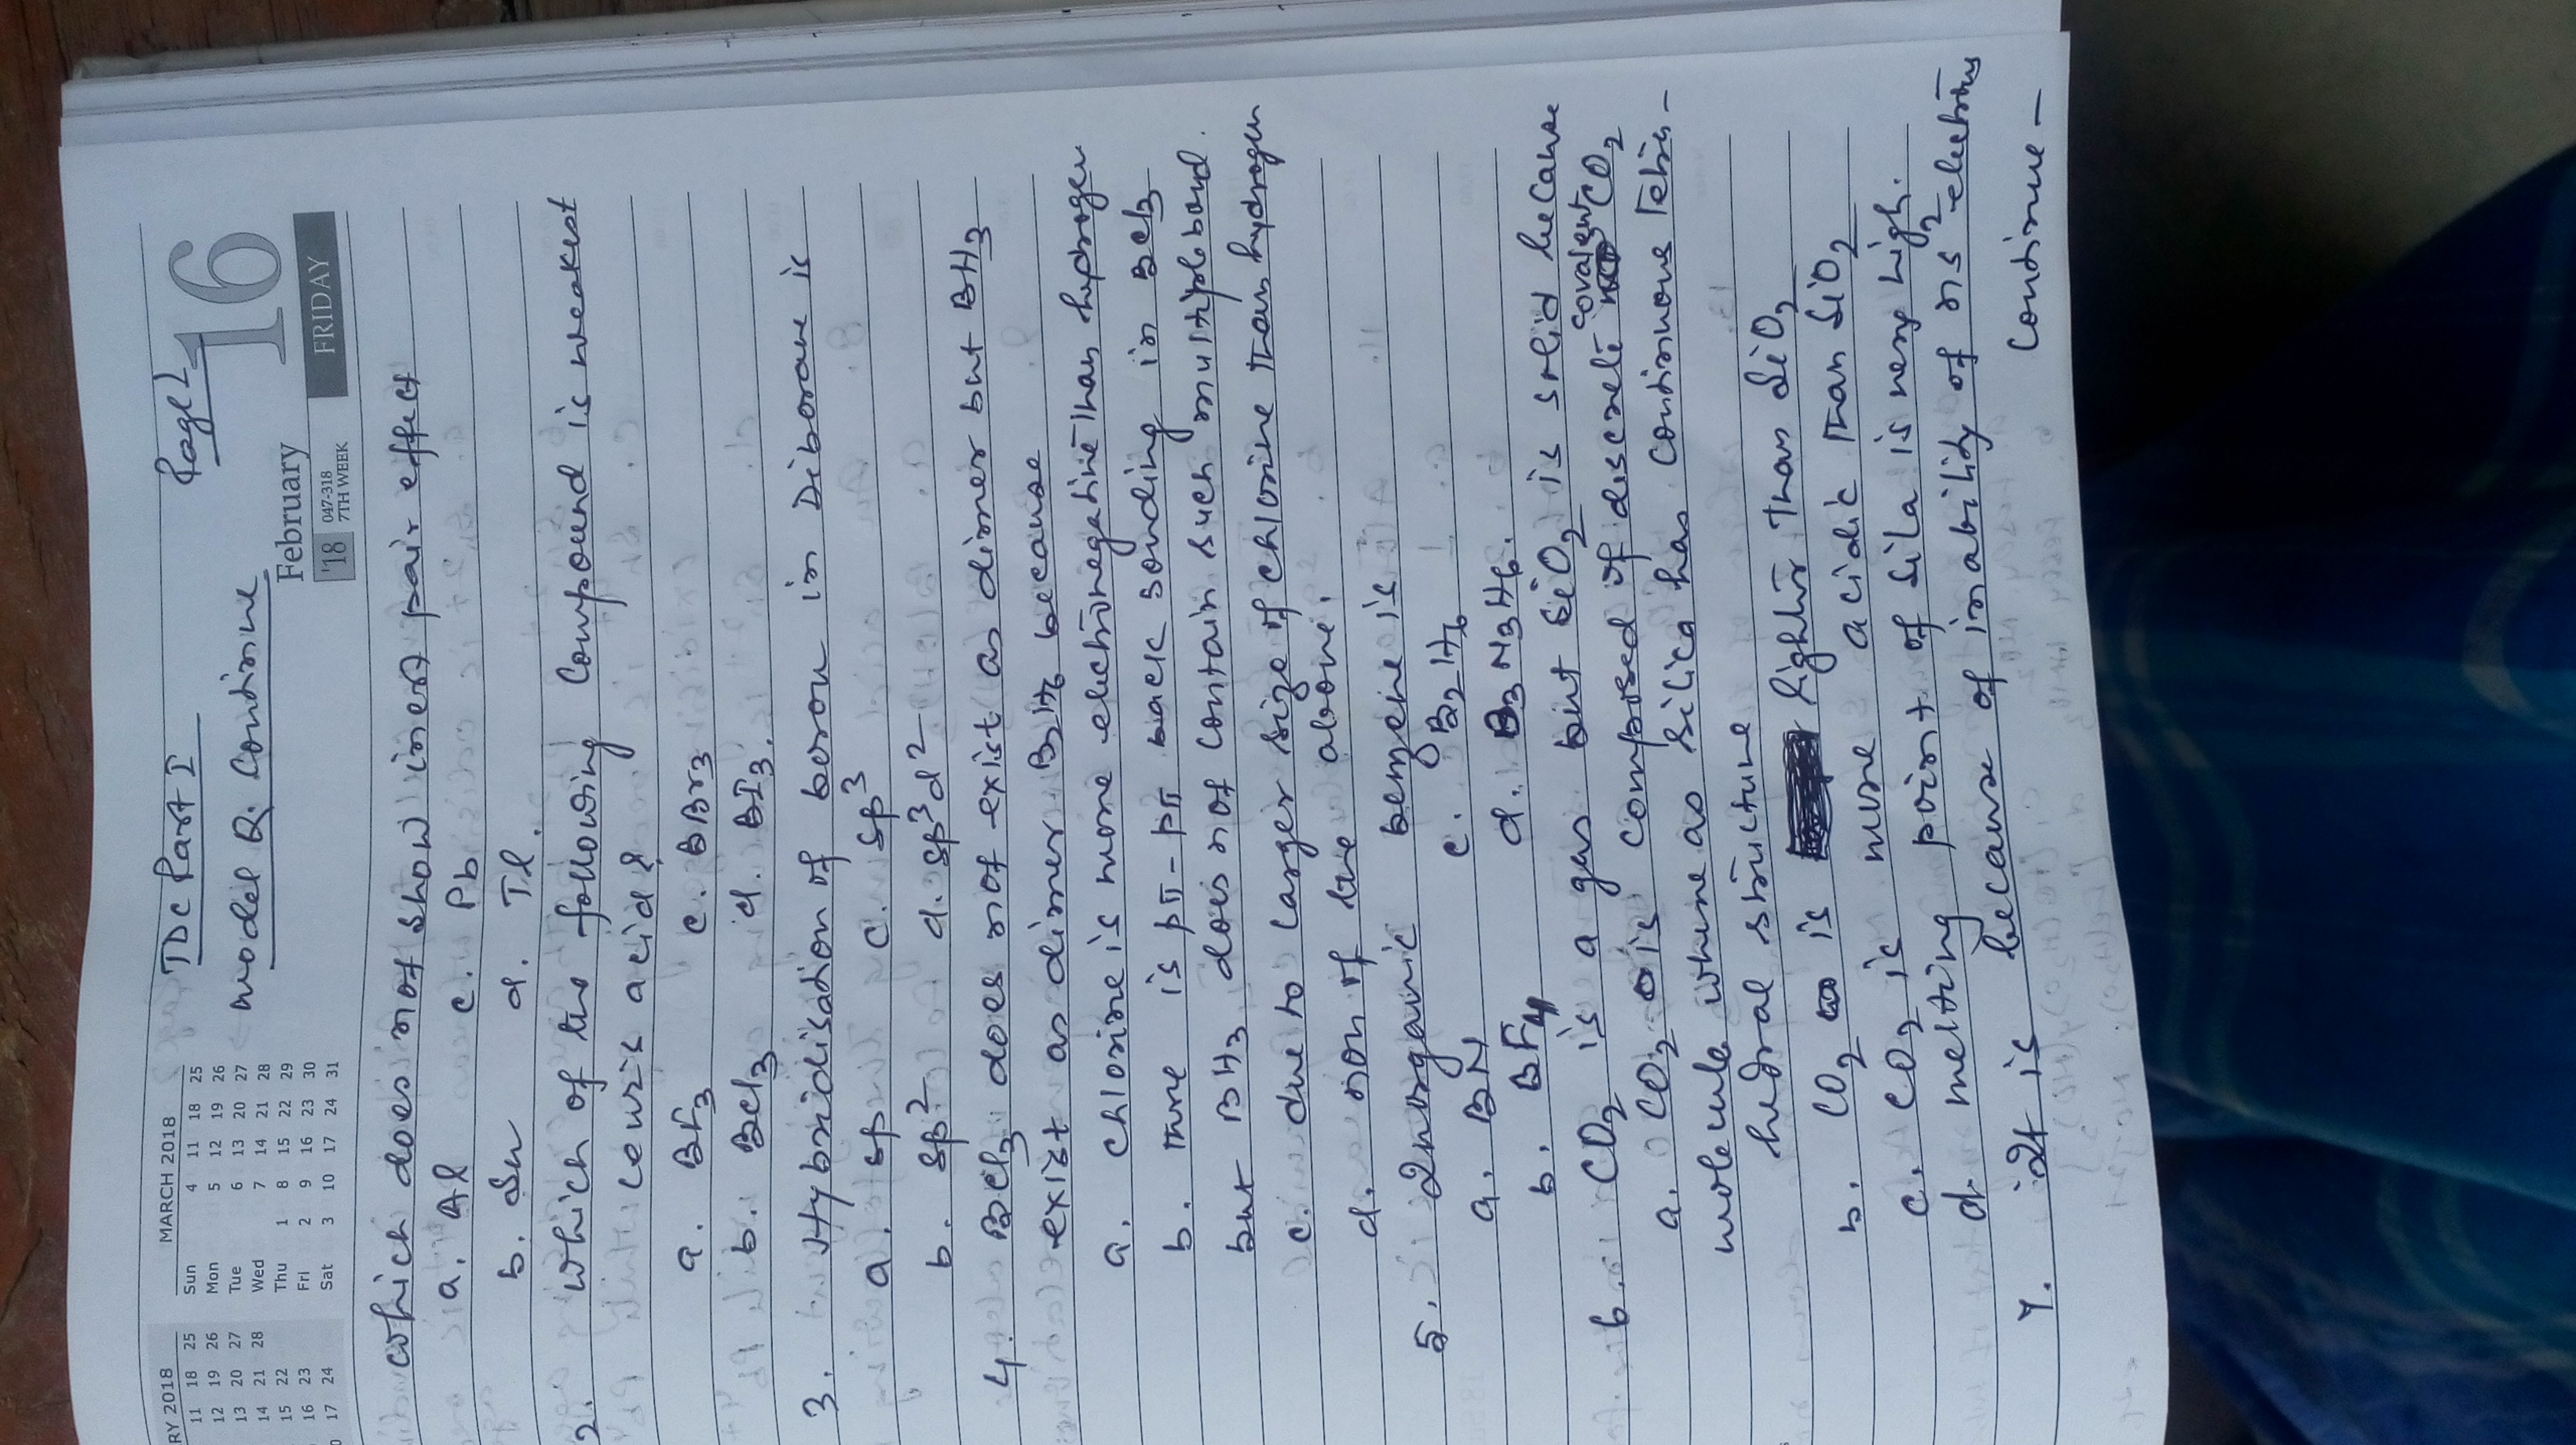 TDC Part I Page 1
model Q. Continue
FEBRUARY 2018
11 18 25
12 19 26
13 20 27
14 21 28
15 22
16 23
17 24
MARCH 2018
Sun 4 11 18 25
Mon 5 12 19 26
Tue 6 13 20 27
Wed 7 14 21 28
Thu 1 8 15 22 29
Fri 2 9 16 23 30
Sat 3 10 17 24 31
February 16
'18 047-318 7TH WEEK FRIDAY
which does not show inert pair effect
a. Al c. Pb
b. Sn d. Tl.
2. which of the following Compound is weakest
Lewis acid?
a. BF3 c. BBr3
b. BCl3 d. BI3.
3. Hybridisation of boron in Diborane is
a. sp c. sp3
b. sp2 d. sp3d2
4 BCl3 does not exist as dimer but BH3
exist as dimer B2H6 because
a. chlorine is more electronegative than hydrogen
b. there is pπ-pπ back bonding in BCl3
but BH3 does not contain such multiple bond.
c. due to larger size of chlorine than hydrogen
d. non of the above.
5. Inorganic benzene is
a. BN c. B2H6
b. BF4 d. B3N3H6.
6. CO2 is a gas but SiO2 is solid because
a. CO2 is composed of discrete covalent CO2
molecule where as silica has continuous tetra-
hedral structure
b. CO2 is lighter than SiO2
c. CO2 is more acidic than SiO2
d. melting point of sila is very high.
7. it is because of inability of ns2 electrons
Continue -